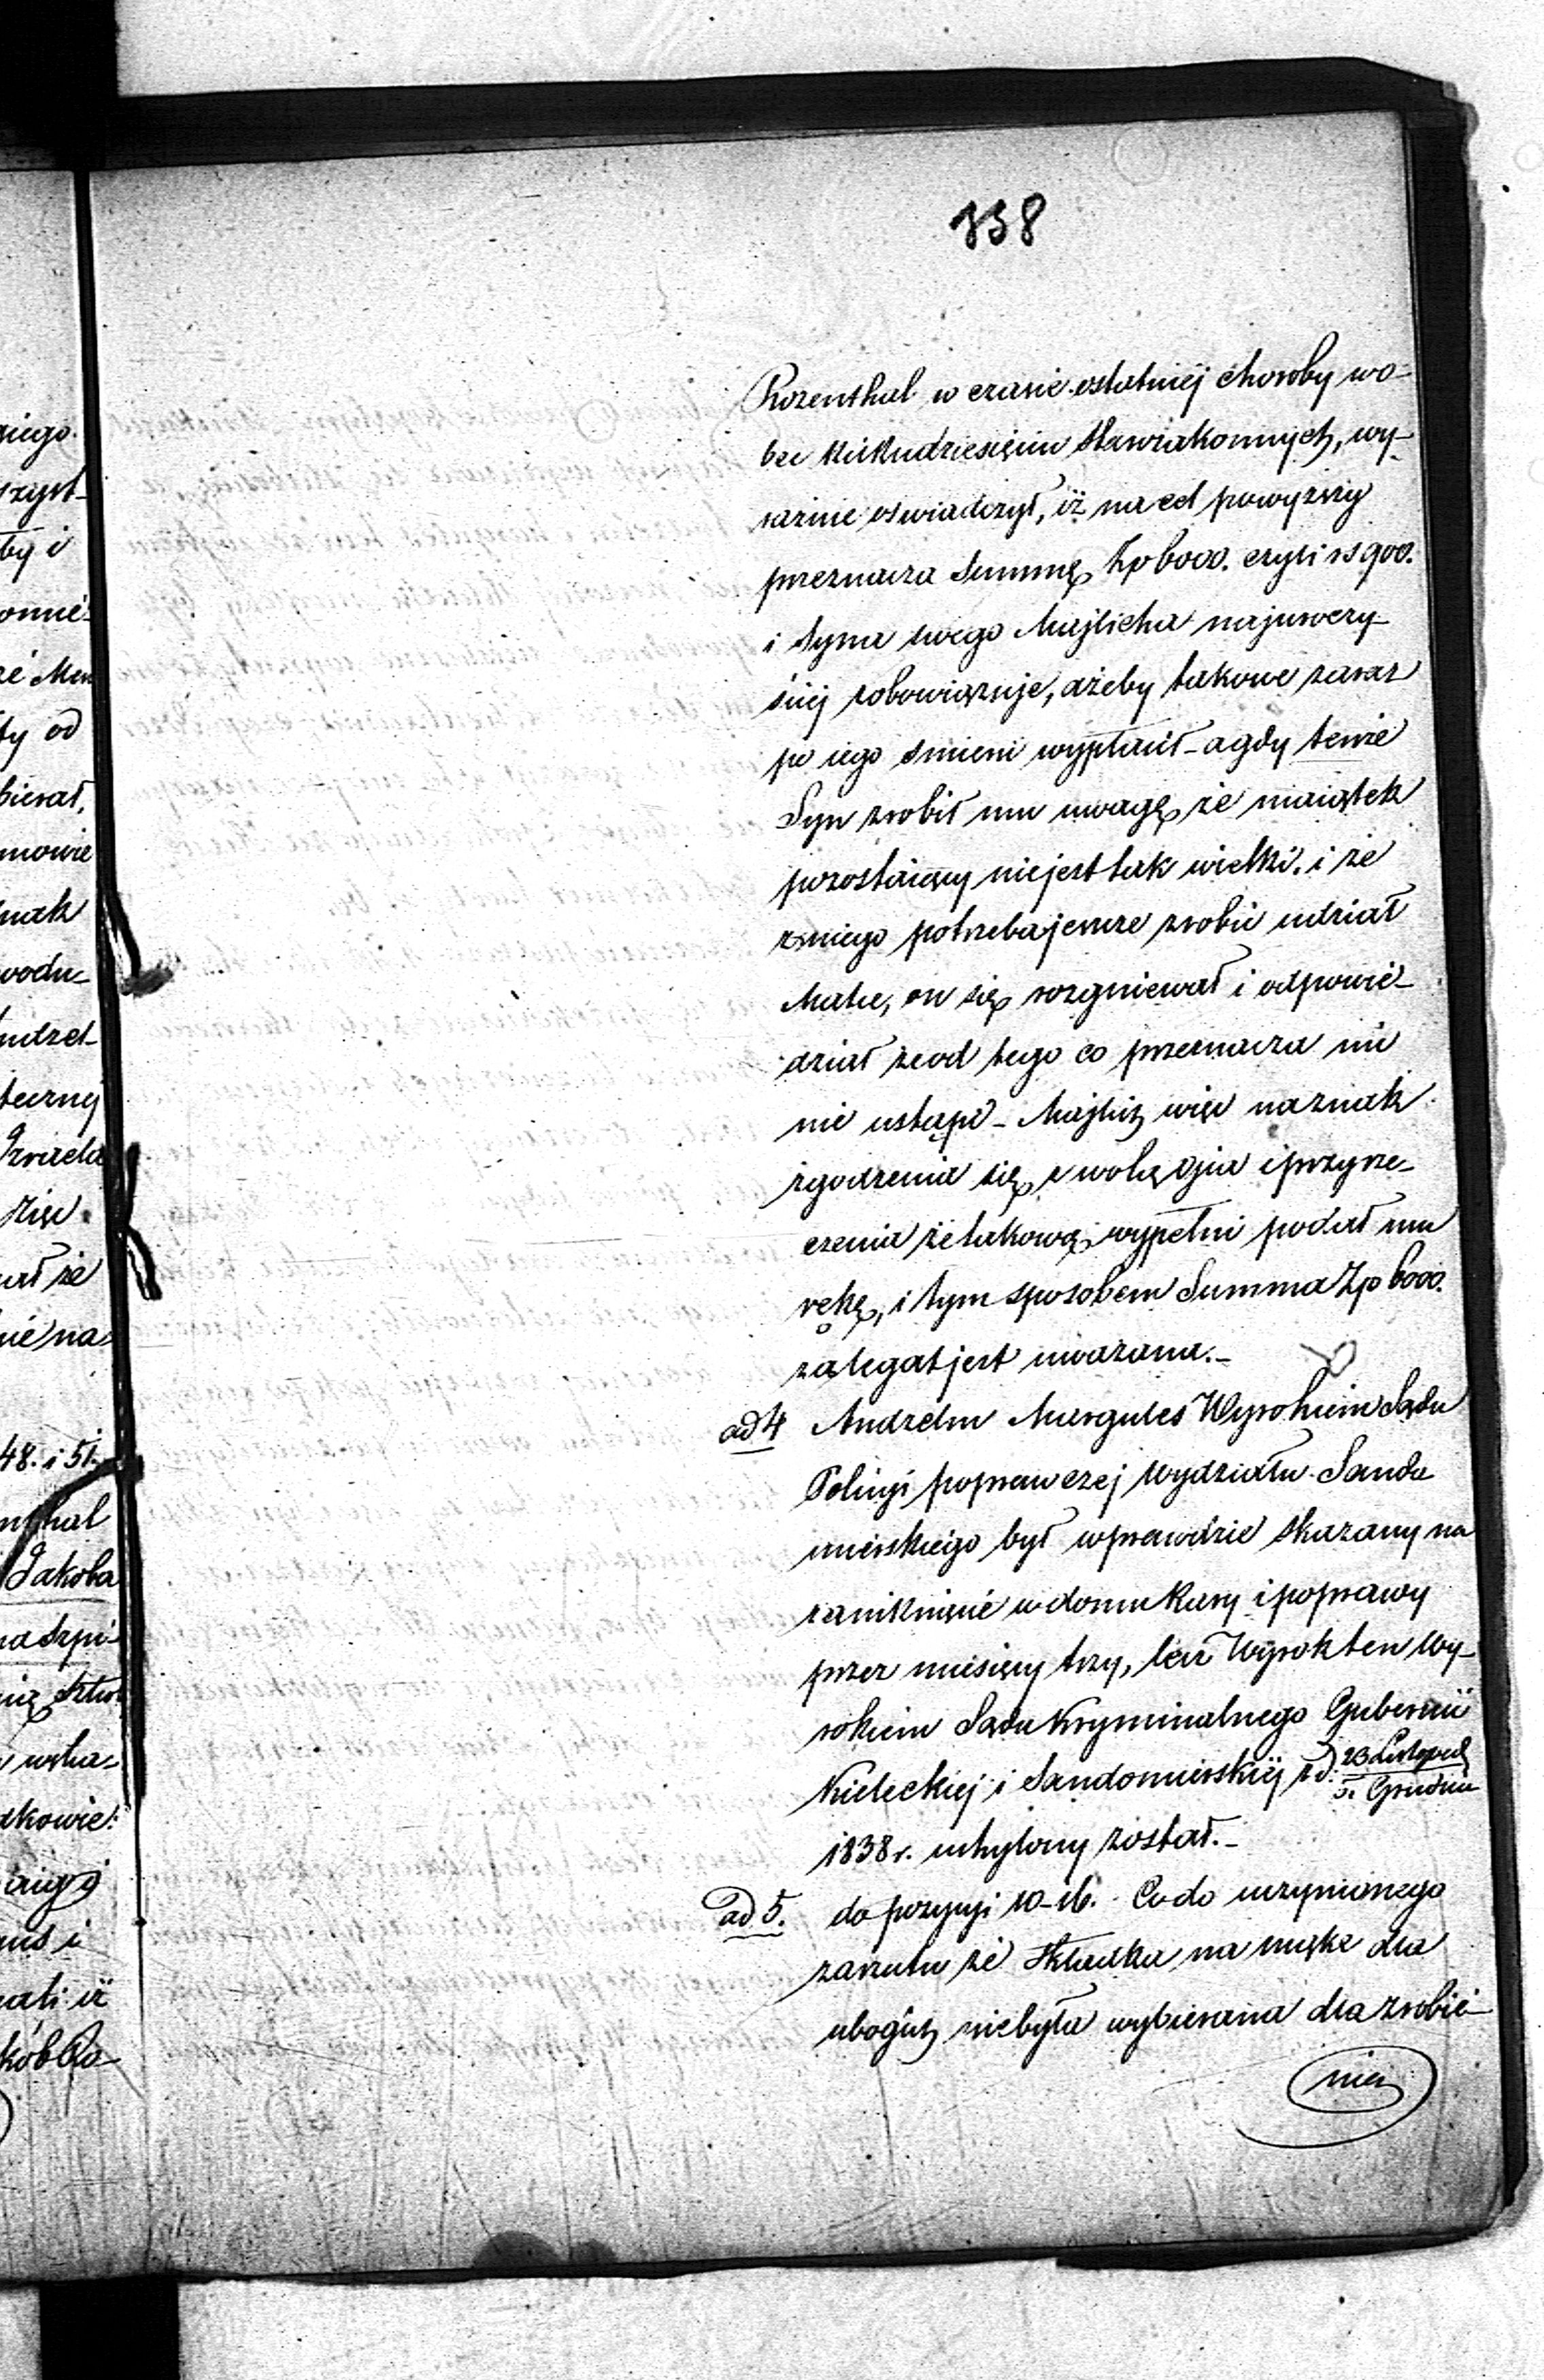 138
Rozenthal w czasie ostatniej choroby wo-
bec kilkudziesięciu Starozakonnych, wy-
raźnie oświadczył, iż na cel powyższy
przeznacza Summę Zp 6000. czyli rs 900.
i Syna swego Majlicha najuroczy-
ściej zobowiązuje, ażeby takowe zaraz
po iego śmierci wypłacił - a gdy tenże
Syn zrobił mu uwagę że maiątek
pozostaiący niejest tak wielki, i że
zniego potrzeba jeszcze zrobić udział
Matce, on się rozgniewał i odpowie-
dział żeod tego co przeznacza nic
nie ustąpi - Majlich więc naznak
zgodzenia się z wolą Ojca i przyrze-
czenia że takową wypełni podał mu
rękę, i tym sposobem Summa Zp 6000.
za legat jest uważana. -
ad 4 Andzelm Margules Wyrokiem Sądu
Policyi poprawczej Wydziału Sando
mierskiego był wprawdzie skazany na
zamknięcie w domu Kary i poprawy
przez miesięcy trzy, lecz Wyrok ten Wy-
rokiem Sądu Kryminalnego Gubernii
Kieleckiej i Sandomierskiej z d: 23 Listopad
5. Grudnia
1838 r. uchylony został. -
ad 5. do pozycyi 10-16. Co do uczynionego
zarzutu że Składka na mąkę dla
ubogich niebyła wybierana dla zrobie-
nia
niego
szyst-
by i
że Men
ty od
bierał,
mowie
nak
wodu-
Zięć
ał że
nie na
48. i 51.
nthal
Jakoba
na Szpi-
dkowie
us i
kób Ro